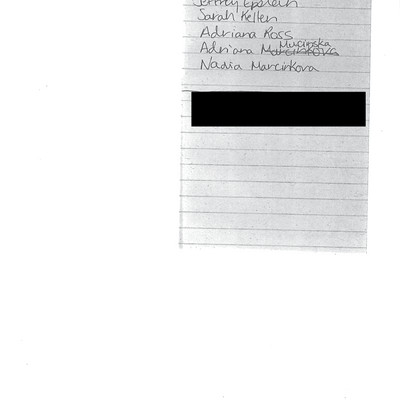 Jeffrey Epstein
Sarah Kellen
Adriana Ross
Mucinska
Adriana Marcinkova
Nadia Marcinkova